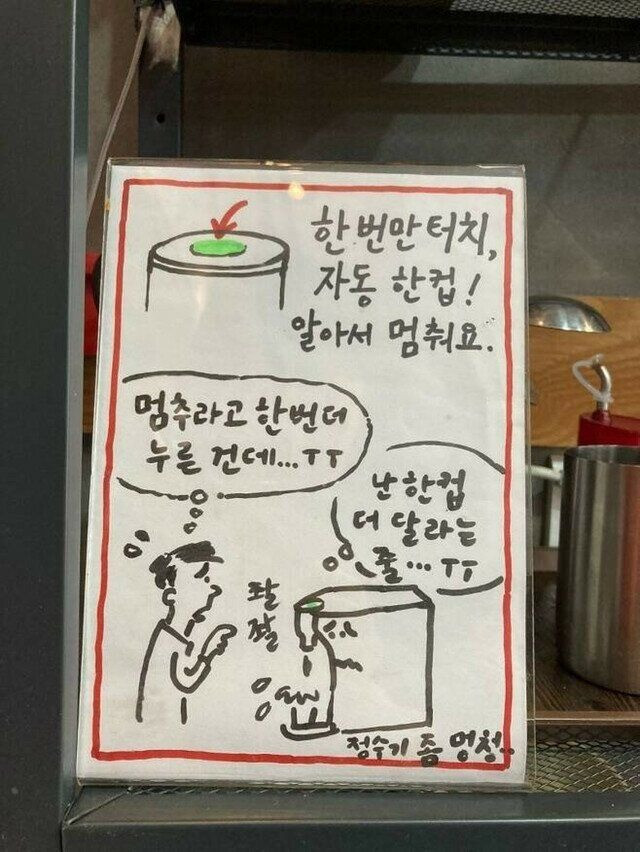 한번만 터치,
자동 한컵!
알아서 멈춰요.
멈추라고 한번더
누른 건데...ㅜㅜ
난 한컵
더 달라는
줄...ㅜㅜ
콸
콸
정수기 좀 멍청..